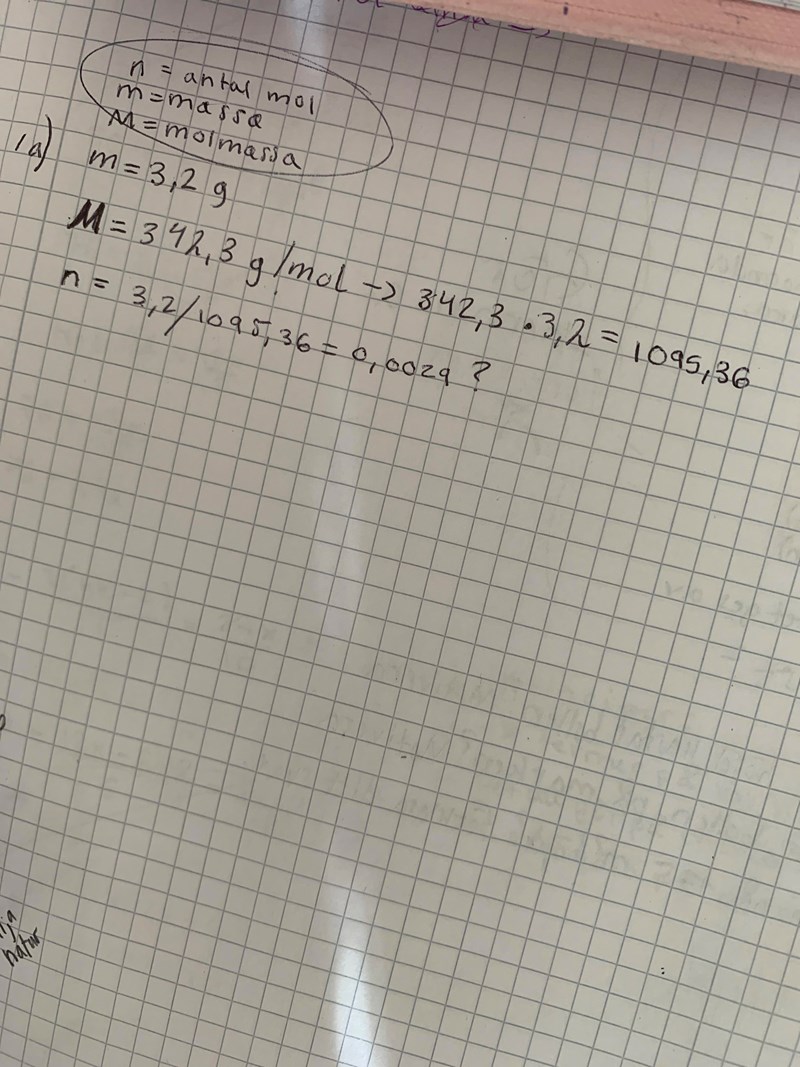 n = antal mol
m = massa
M = molmassa
1a) m = 3,2 g
M = 342,3 g/mol -> 342,3 · 3,2 = 1095,36
n = 3,2/1095,36 = 0,0029 ?
natur